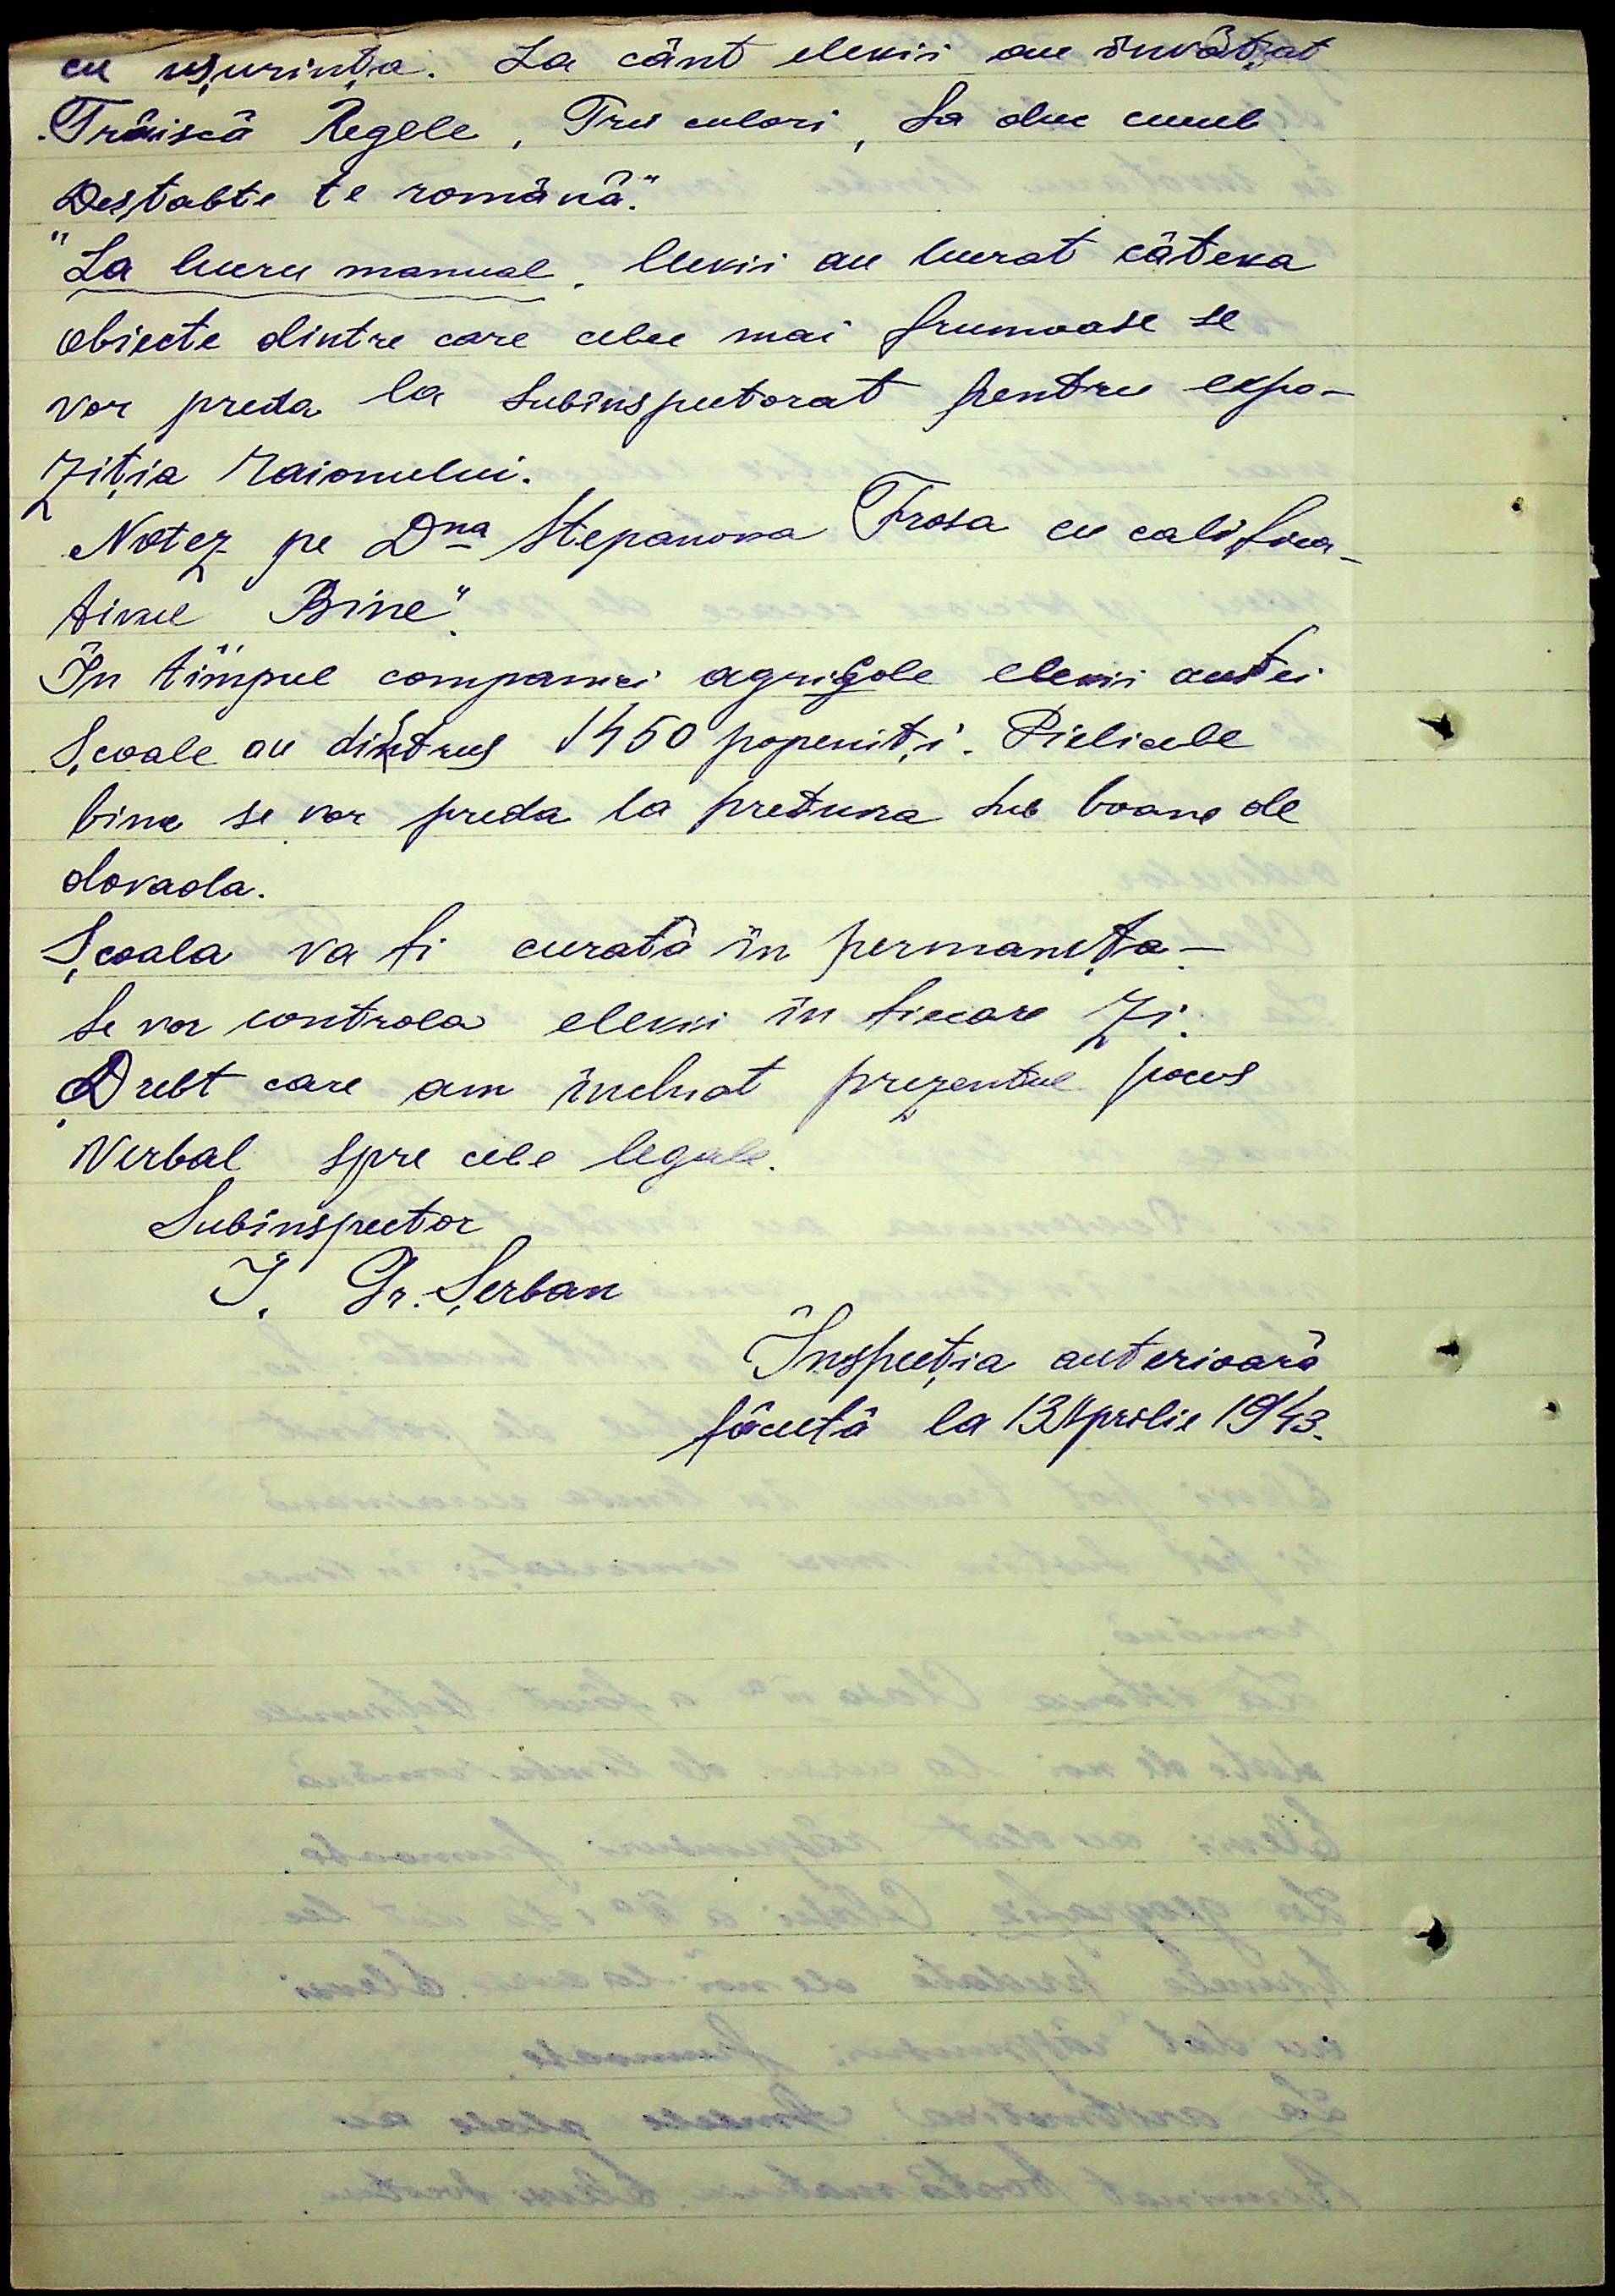 cu ușurința. La cânt elevii au învățat
Trăiscă Regele, Trii culori, Sa duc cucul
Deștabte te română."
"La lucru manual. Elevii au lucrat câteva
obiecte dintre care cele mai frumoase se
vor preda la Subinspectorat pentru expo-
ziția Raionului.
Notez pe Dna Stepanova Frosa cu califica-
tivul Bine".
În timpul companiei agrigole elevii
Școale au distrus 1450 popeniți. Pielicele
bine se vor preda la pretura sub boane de
dovada.
Școala va fi curată în permaneța -
Se vor controla elevii în fiecare zi.
Drebt care am încheiat prezentul poces
Verbal spre cele legale.
Subinspector
I. Gr. Șerban
Inspecția anterioară
făcută la 13 Aprilie 1943.